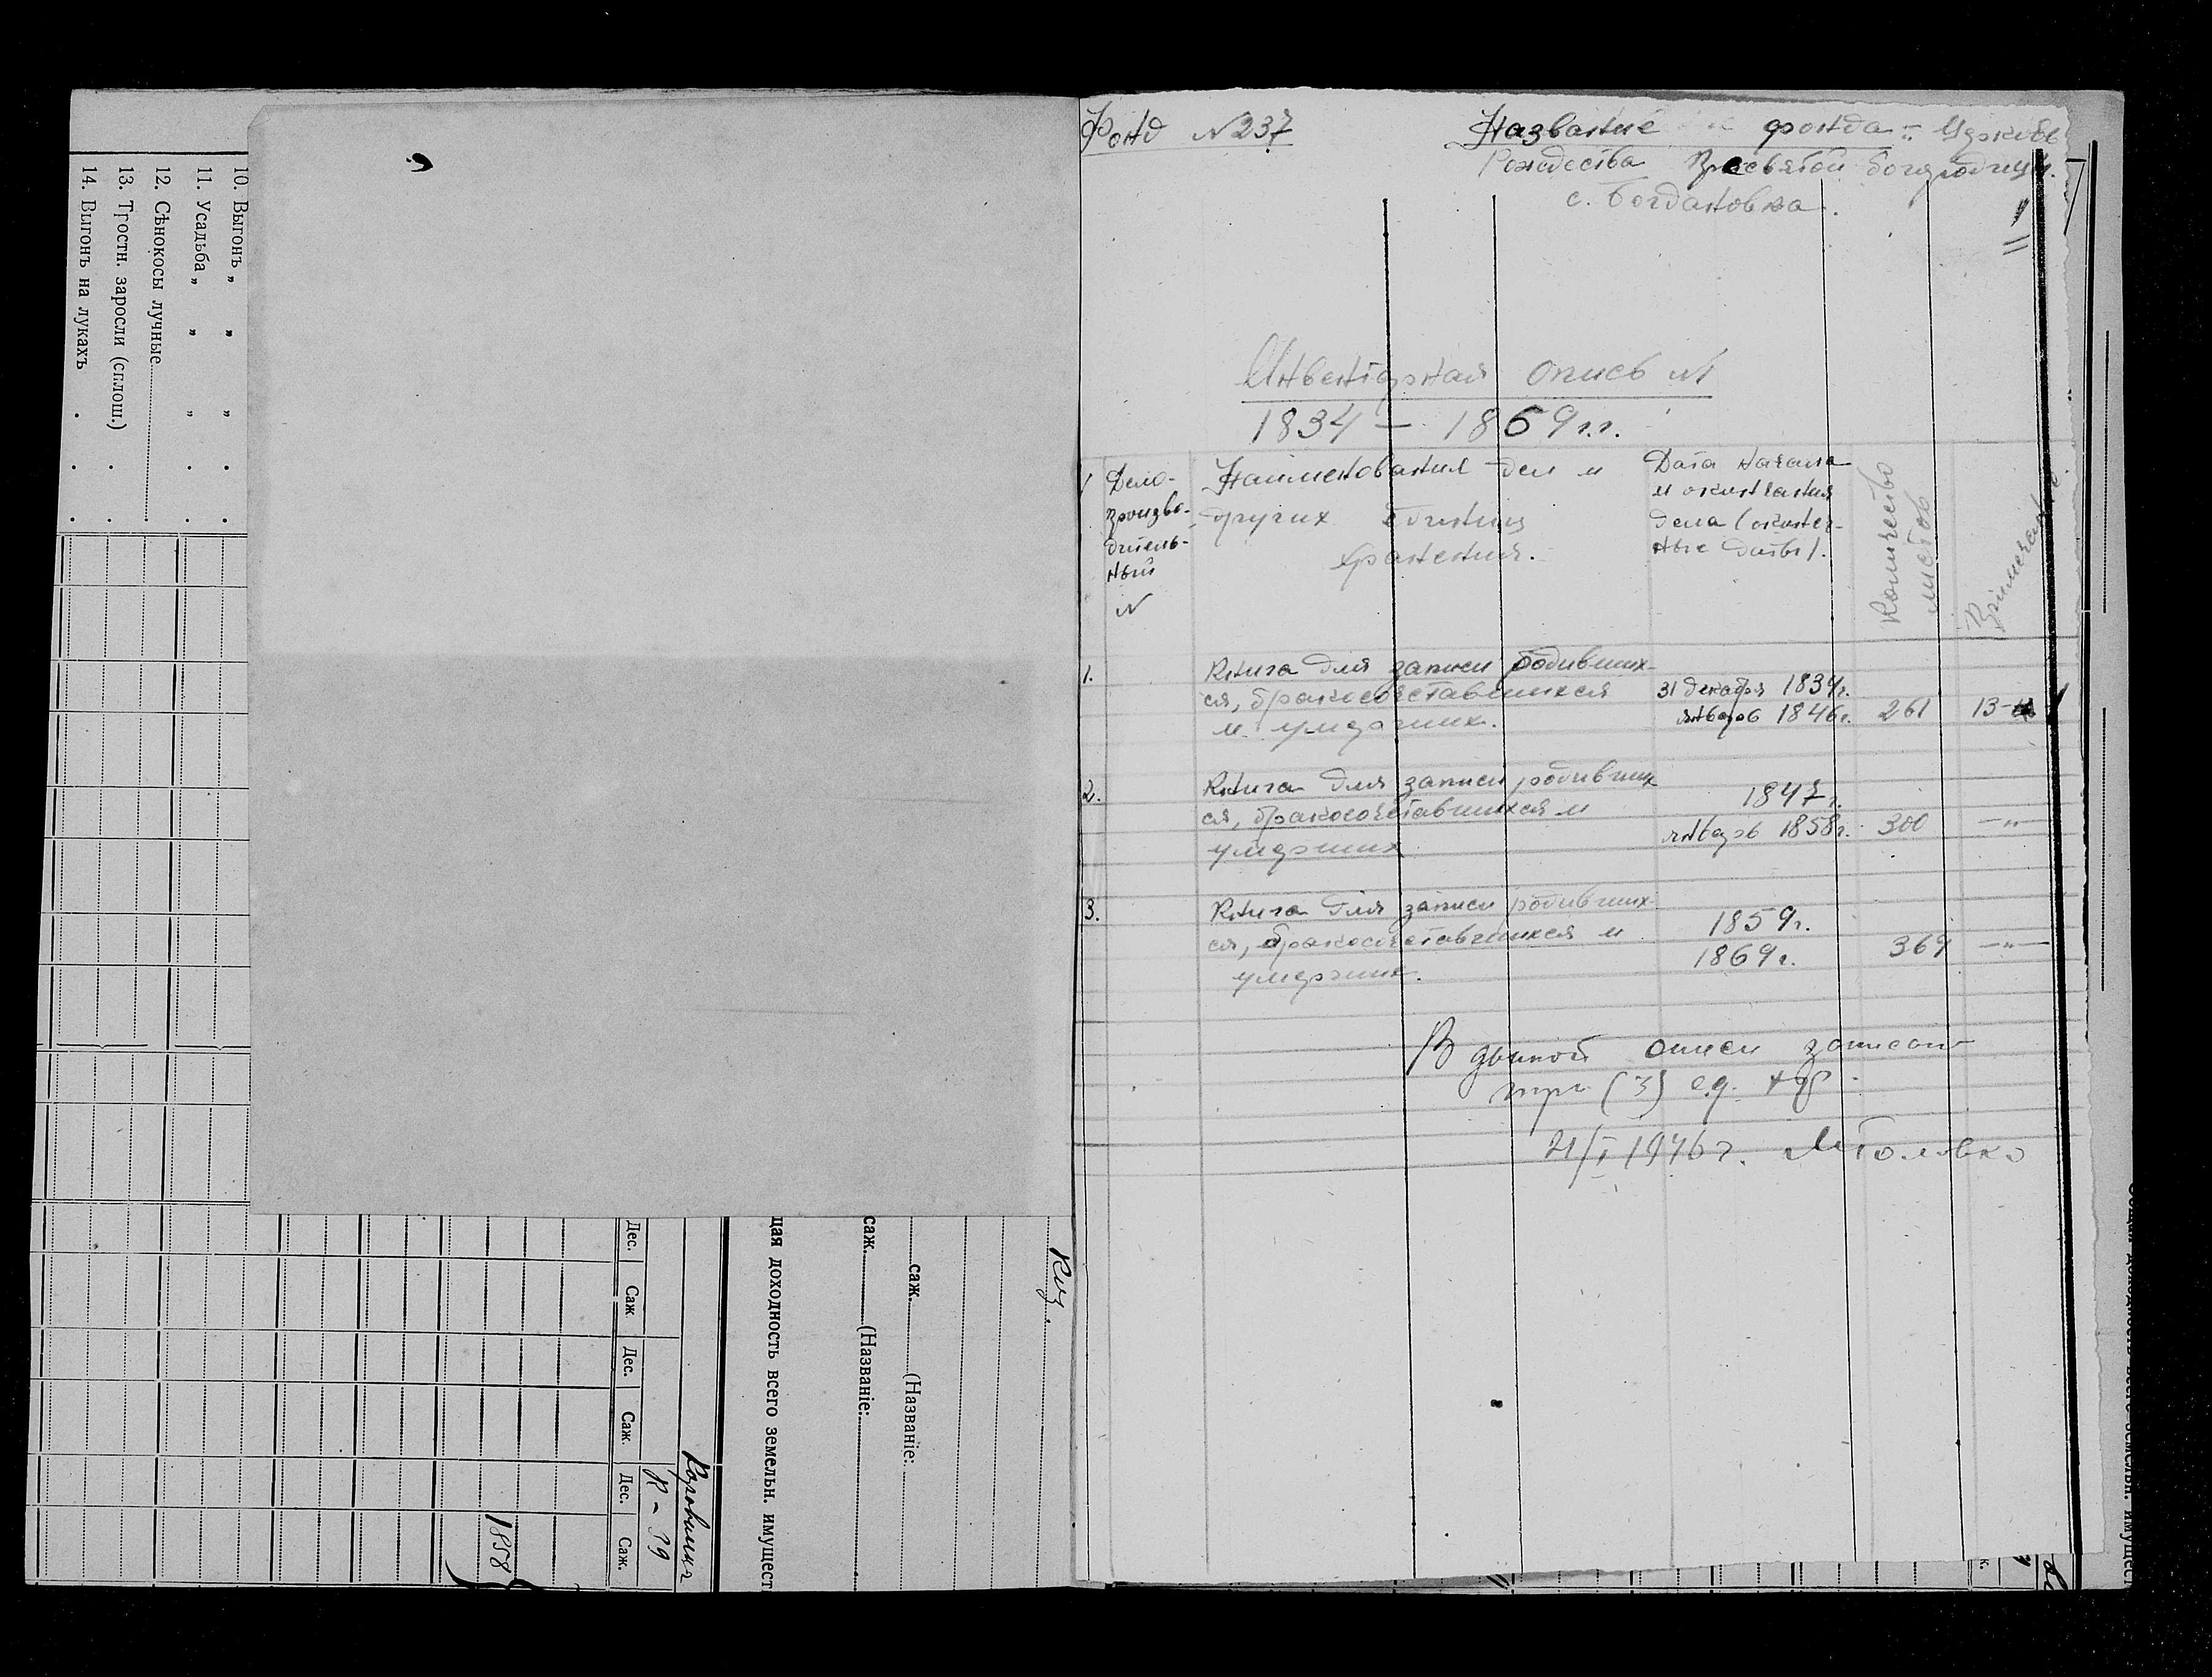 10. Выгонъ „ „ „
11. Усадьба „ „ „
12. Сѣнокосы лучные
13. Тростн. заросли (сплош.)
14. Выгонъ на лукахъ
Дес. Саж. Дес. Саж. Дес. Саж.
К-39
1858
щая доходность всего земельн. имущест
саж. (Названіе:
саж. (Названіе:
Фонд №237
Название фонда: Церковь
Рождества Пресвятой Богородицы.
с. Богдановка.
Инвентарная опись №1
1834 — 1869 г.г.
Дело-
произво-
дитель-
ный
№
Наименования дел и
других единиц
хранения.
Дата начала
и окончания
дела (оконеч-
ные даты).
Количество
листов
1.
Книга для записи родивших-
ся, бракосочетавшихся
и умерших.
31 декабря 1834г.
январь 1846г.
261
2.
Книга для записи родивших
ся, бракосочетавшихся и
умерших
1847г.
январь 1858г.
300
—"—
3.
Книга для записи родивших-
ся, бракосочетавшихся и
умерших.
1859г.
1869г.
369
—"—
В данной описи записано
три (3) ед. хр.
21/I 1946г. Головко